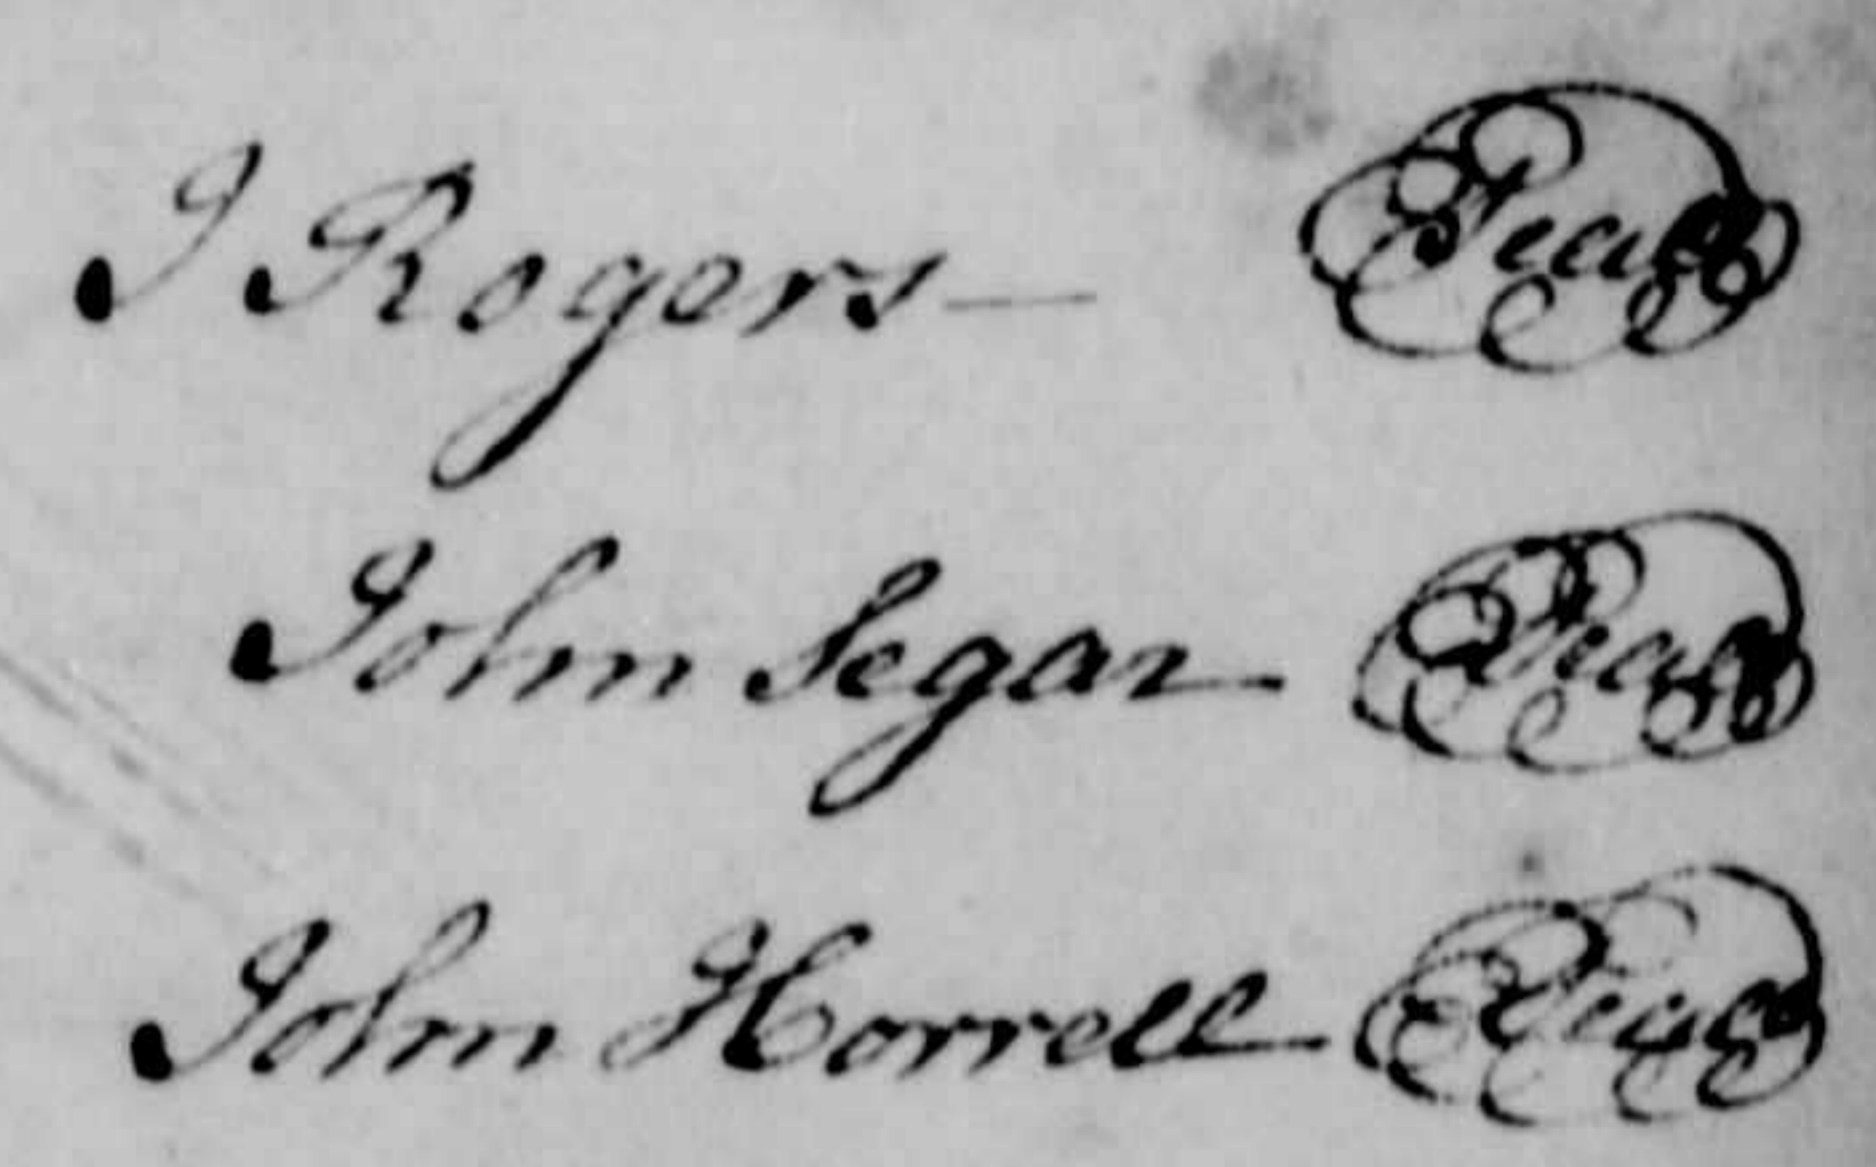 J Rogers— Seal
John Segar Seal
John Horrell Seal